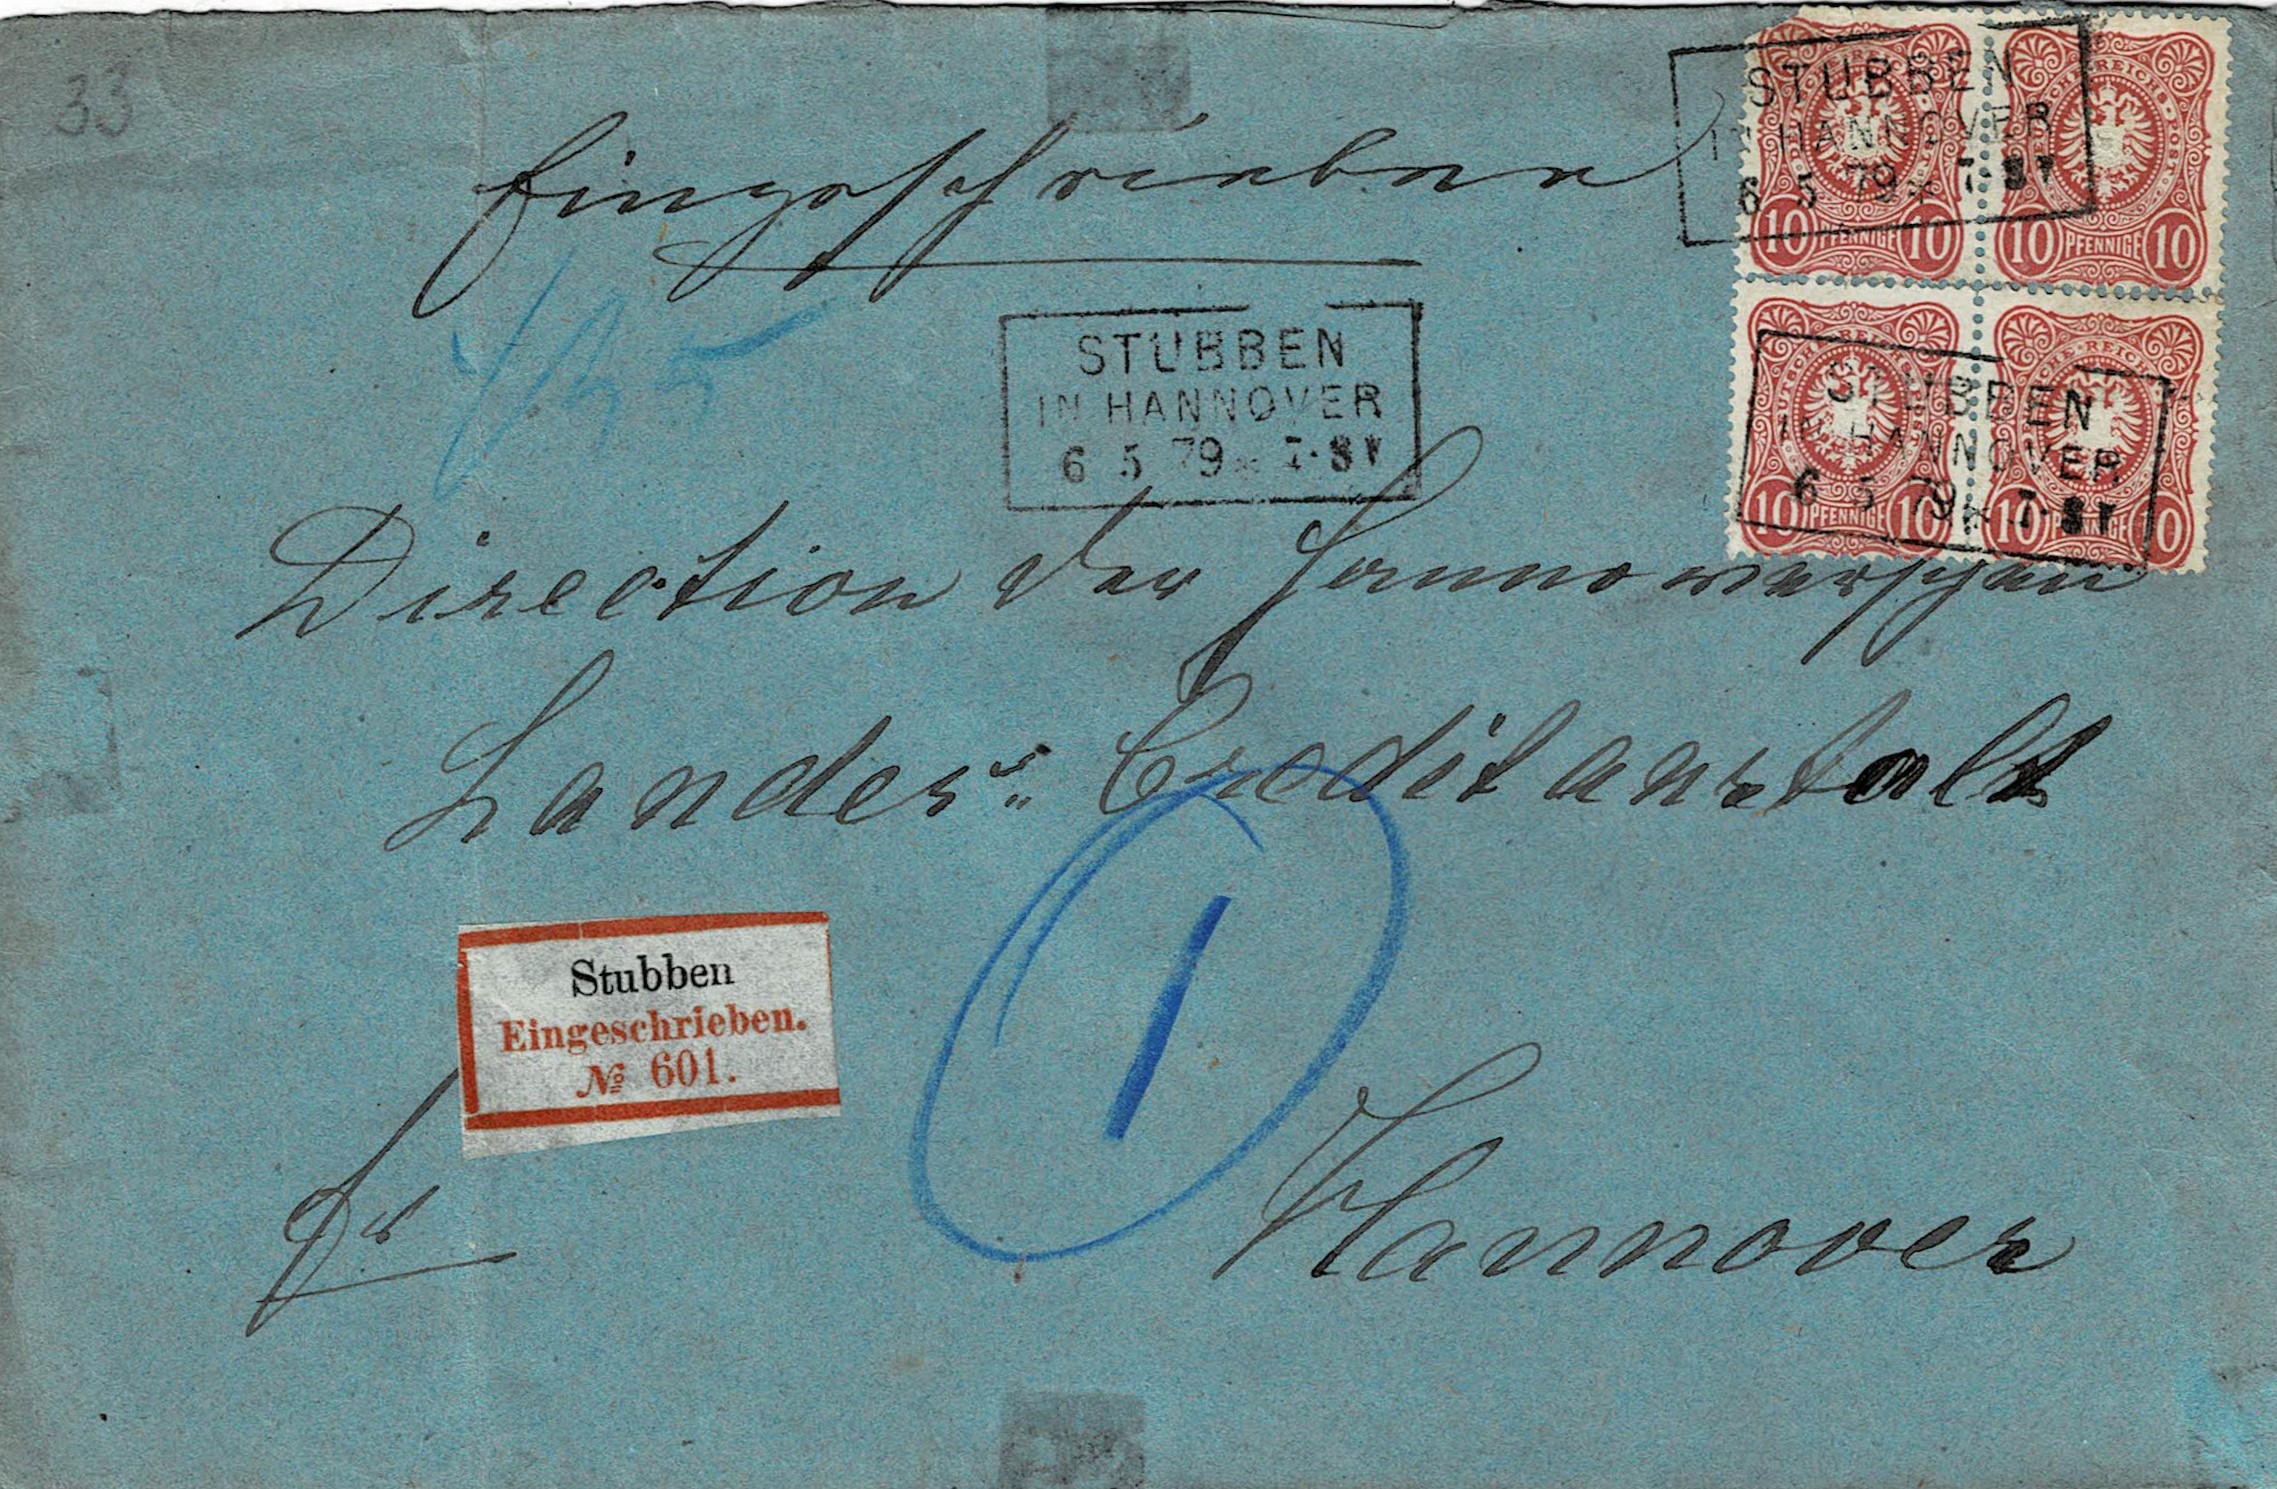 33
Eingeschrieben
STUBBEN
IN HANNOVER
6 5 79
DEUTSCHE REICHS-POST
10 PFENNIGE 10
10 PFENNIGE 10
STUBBEN
IN HANNOVER
6 5 79
10 PFENNIGE 10
10 PFENNIGE 10
STUBBEN
IN HANNOVER
6 5 79
Direction der Hannoverschen
Landes- Creditanstalt
1
Stubben
Eingeschrieben.
№ 601.
Hannover